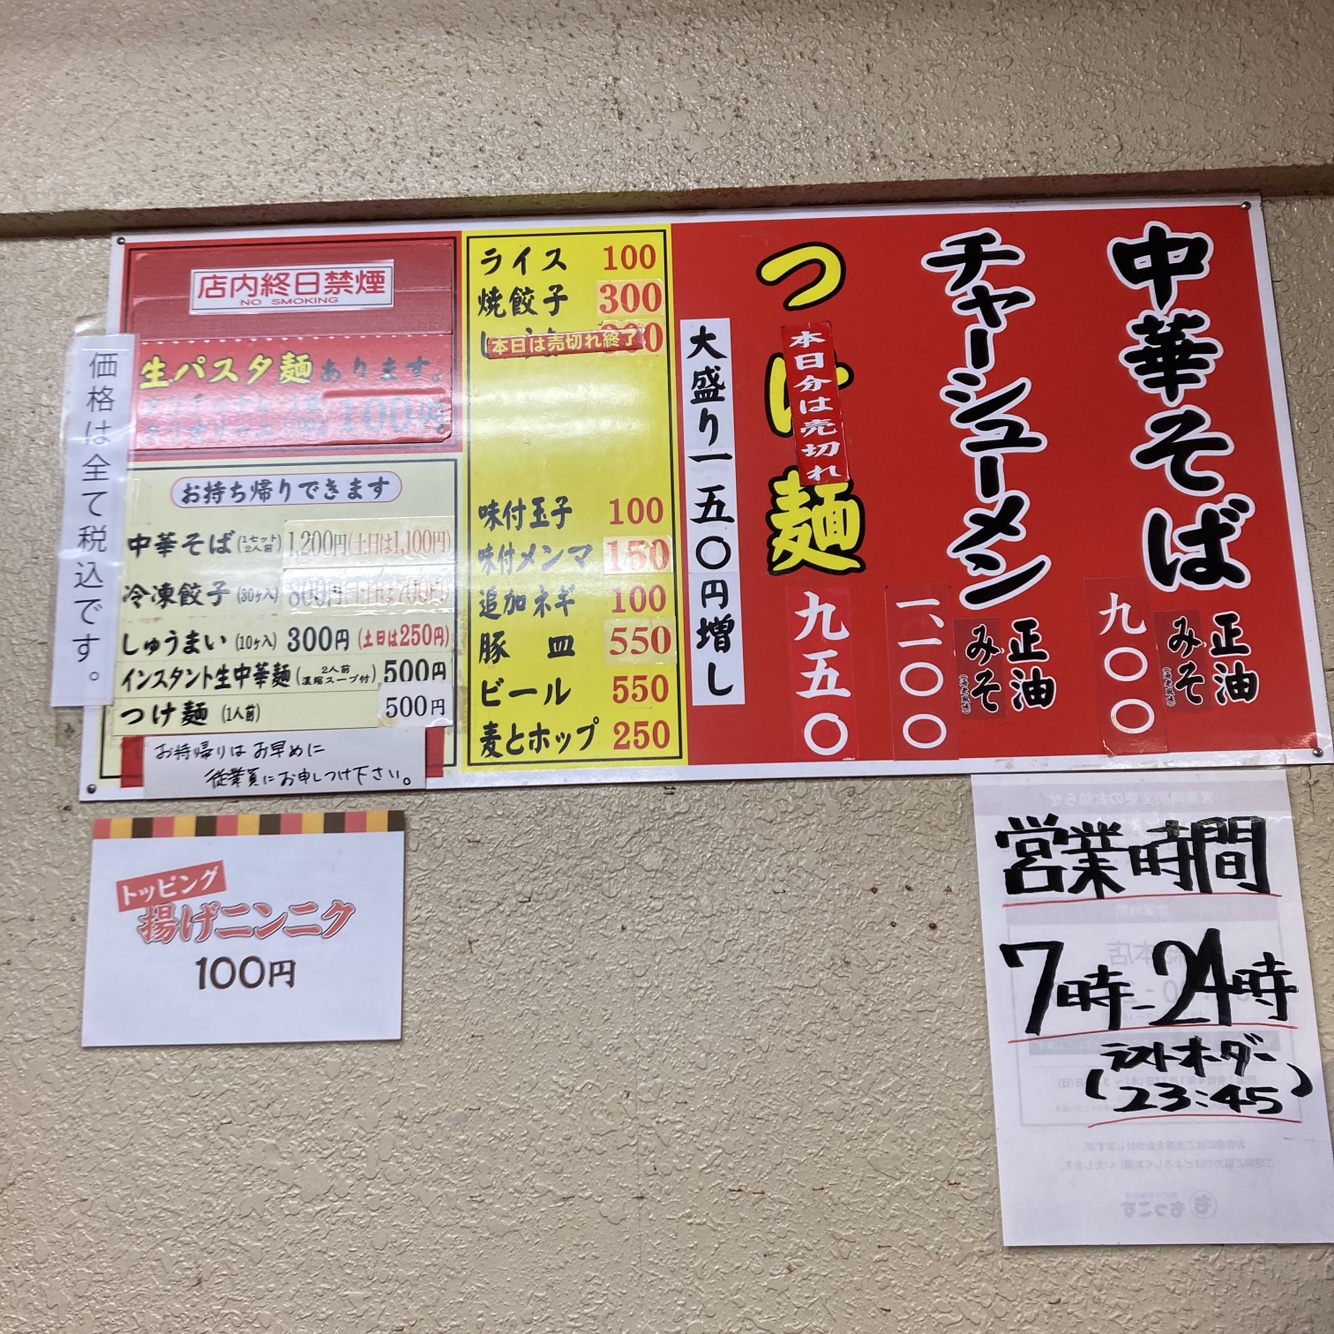 中華そば
正油
みそ
九〇〇
チャーシューメン
正油
みそ
一、一〇〇
つけ麺
本日分は売切れ
九五〇
大盛り一五〇円増し
ライス 100
焼餃子 300
本日は売切れ終了
味付玉子 100
味付メンマ 150
追加ネギ 100
豚皿 550
ビール 550
麦とホップ 250
店内終日禁煙
NO SMOKING
生パスタ麺あります。
100円
お持ち帰りできます
中華そば(1セット2人前) 1,200円(土日は1,100円)
冷凍餃子(30ヶ入) 800円(土日は700円)
しゅうまい(10ヶ入) 300円(土日は250円)
インスタント生中華麺(2人前 濃縮スープ付) 500円
つけ麺(1人前) 500円
お持帰りはお早めに
従業員にお申しつけ下さい。
価格は全て税込です。
トッピング
揚げニンニク
100円
営業時間
7時-24時
(ラストオーダー
23:45)